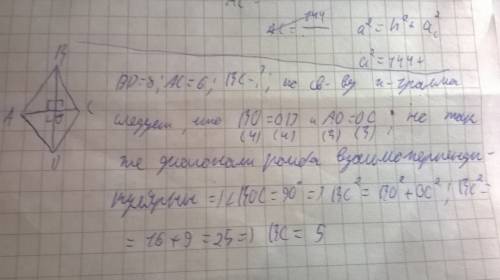 144
a² = h² + a²
c
a² = 144+
BD=8; AC=6; BC-?; по св-ву п-грамма
B
A
C
O
D
следует, что BO=OD и AO=OC; 
(4) (4) (3) (3)
же диагонали ромба взаимоперпенди-
кулярны =) <BOC=90° =) BC² = BO² + OC²; BC² =
= 16+9 = 25 =) BC = 5